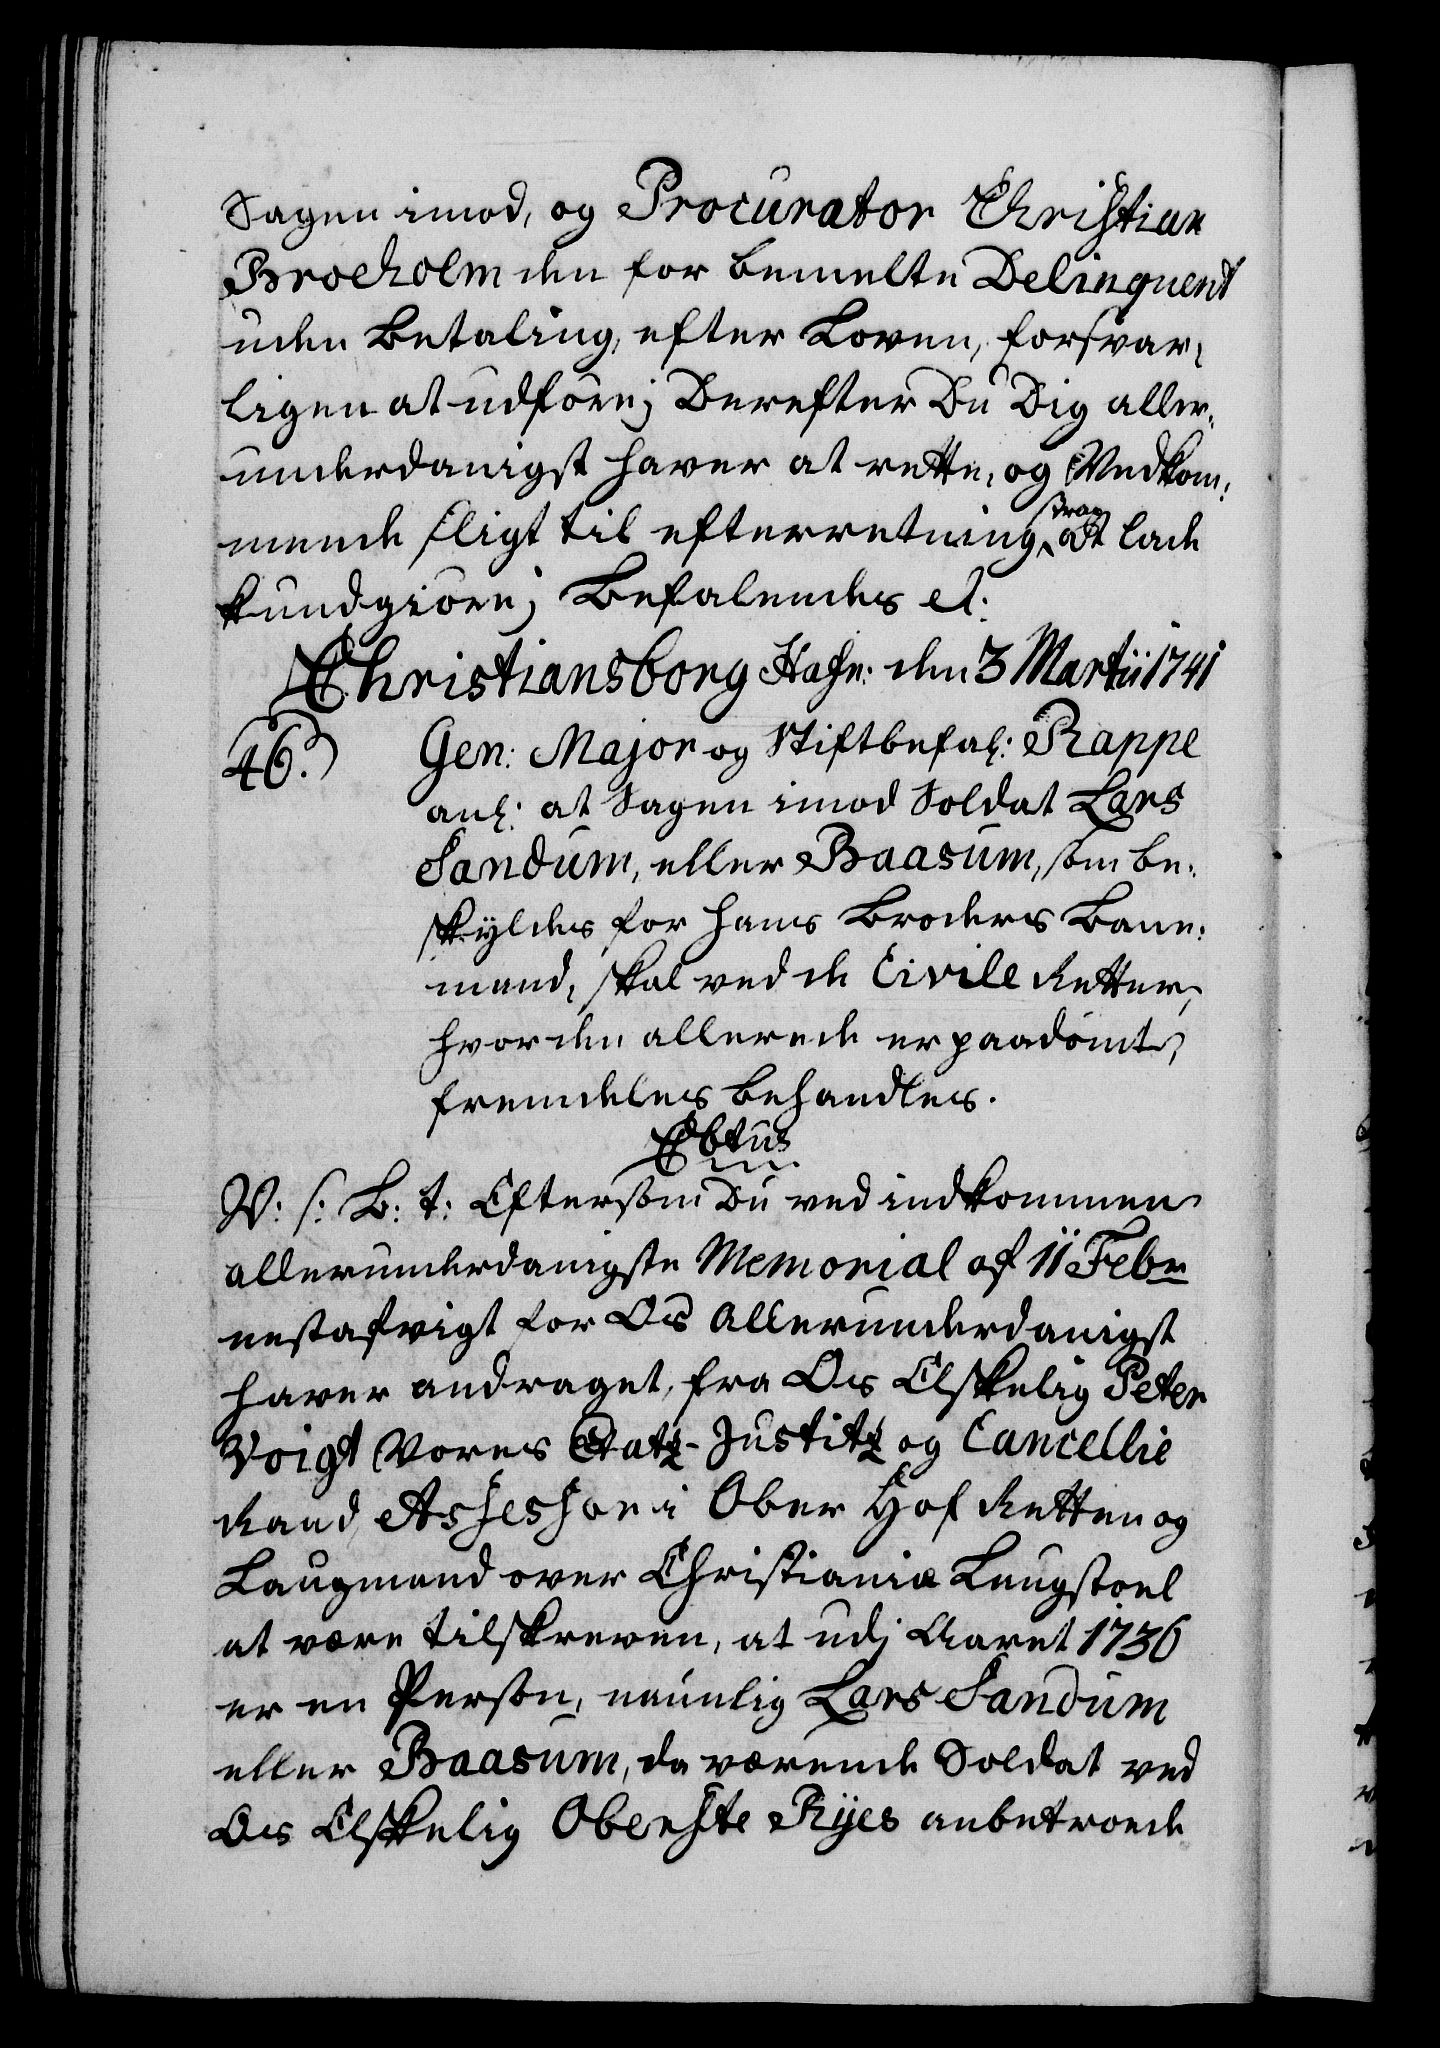 Sagen imod, og Procurator Christian
Broeholm den for bemelte Delinquent
uden Betaling, efter Loven, forsvar-
ligen at udføre; Derefter Du Dig aller-
underdanigst haver at rette, og Vedkom-
mende sligt til efterretning strax at lade
kundgiøre; Befalendes etc:
Christiansborg Hafn: den 3 Martii 1741
46.) Gen: Major og Stiftbefal: Rappe
anl: at Sagen imod Soldat Lars
Sandum, eller Baasum, som be-
skyldes for hans Broders Bane-
mand, skal ved de Civile Retter,
hvor den allerede er paadømt,
fremdeles behandles.
Chtus
V: s: B: t: Eftersom Du ved indkommen
allerunderdanigste Memorial af 11 Febr
nestafvigt for Os allerunderdanigst
haver andraget, fra Os Elskelig Peter
Voigt Vores Etatz- Justitz og Cancellie
Raad, Assessor i Ober Hof Retten og
Laugmand over Christiania Laugstoel
at være tilskreven, at udj Aaret 1736
er en Person, nemlig Lars Sandum
eller Baasum, da værende Soldat ved
Os Elskelig Oberste Ryes anbetroede